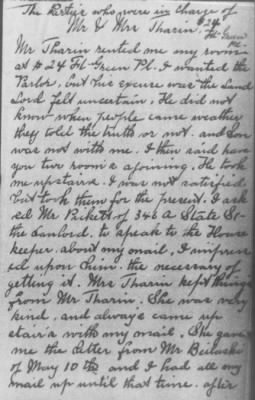 The Partys who were in charge of
Mr & Mrs Tharin. #24
Ft-Green
Pl-
Mr Tharin rented me my rooms
at #24 Ft-Green Pl. I wanted the
Parlor, but his excuse was the Land
Lord felt uncertain. He did not
know when people came weather
they told the truth or not. and Son
was not with me. I then said have
you two rooms ajoining. He took
me upstairs. I was not satisfied
but took them for the present. I ask
ed Mr Pikett of 346 A State St-
the Lanlord. to speak to the House
keeper about my mail, I impress
ed upon him. the necessary of
getting it. Mrs Tharin kept things
from Mr Tharin. She was very
kind, and always came up
stairs with my mail. She gave
me the letter from Mr
of May 10th and I had all my
mail up until that time. after